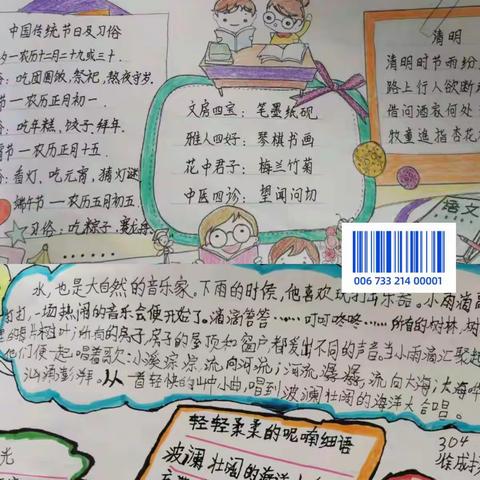 中国传统节日及习俗
夕-农历十二月二十九或三十.
吃团圆饭,祭祀,熬夜守岁.
节一农历正月初一.
吃年糕、饺子、拜年.
节一农历正月十五.
看灯、吃元宵、猜灯谜
端午节一农历五月初五
习俗:吃粽子、赛龙舟
文房四宝:笔墨纸砚
雅人四好:琴棋书画
花中君子:梅兰竹菊
中医四诊:望闻问切
清明
清明时节雨纷
路上行人欲断
借问酒家何处
牧童遥指杏花
语文
006 733 214 00001
水,也是大自然的音乐家。下雨的时候,他喜欢玩打击乐器。小雨滴
打打,一场热闹的音乐会便开始了。滴滴答答……叮叮咚咚……所有的树林,树
片树叶;所有的房子,房子的屋顶和窗户都发出不同的声音。当小雨滴汇聚起
他们便一起唱着歌:小溪淙淙,流向河流;河流潺潺,流向大海;大海哗
汹涌澎湃。从一首轻快的山中小曲,唱到波澜壮阔的海洋大合唱。
轻轻柔柔的呢喃细语
波澜壮阔的海洋大
光
304